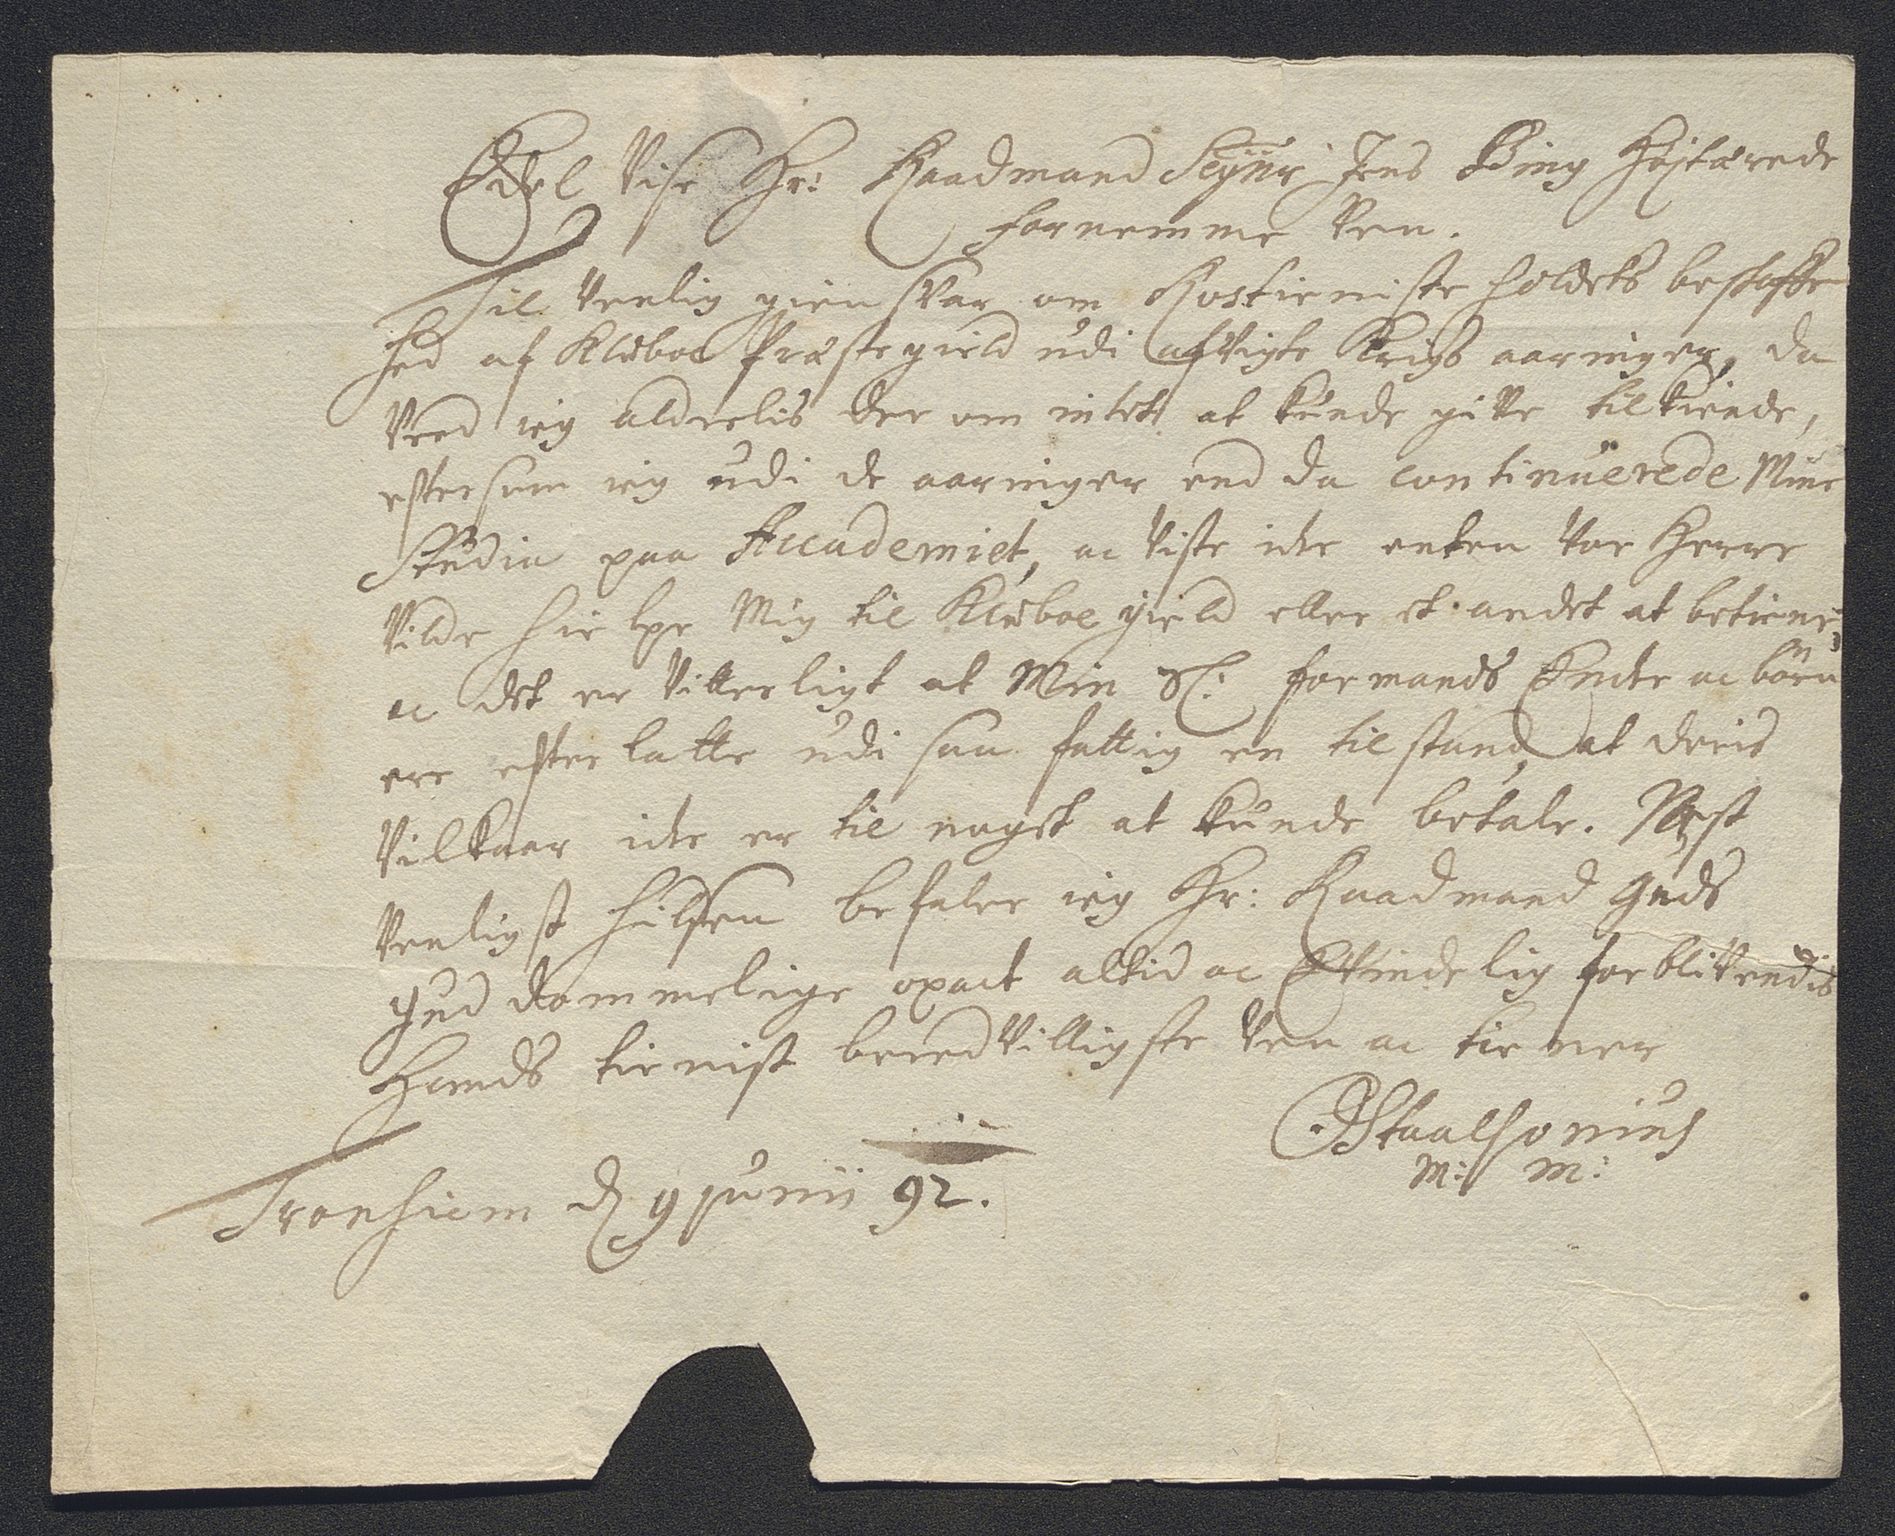 Edel Vise Hr: Raadmand Seijnr Jens Bing Højtærede
fornemme Ven.
Til Venlig gien svar om Rostieniste holdets beskaffen
hed af Klæboe Præstegield udi afvigte Krigs aaringer, da
Veed ieg aldeelis der om intet at kunde give tilkiende,
eftersom ieg udi de aaringer end da continuerede Mine
Studia paa Accademiet, ac viste icke enten Vor Herre
Vilde hielpe Mig til Klæboe gield eller et andet at betiene,
ac det er Vitterligt at Min Sl: formands Encke ac børn
ere efterlatte udi saa fattig en tilstand, at deris
Vilkaar icke er til noget at kunde betale. Næst
Venligst hilsen befaler ieg Hr: Raadmand Guds
Gud dommelige opact altid ac Evindelig forblivendis
Hands tienist beredvilligste Ven ac tiener
Staalsonius
M: m:
Tronhiem d 9 junii 92.